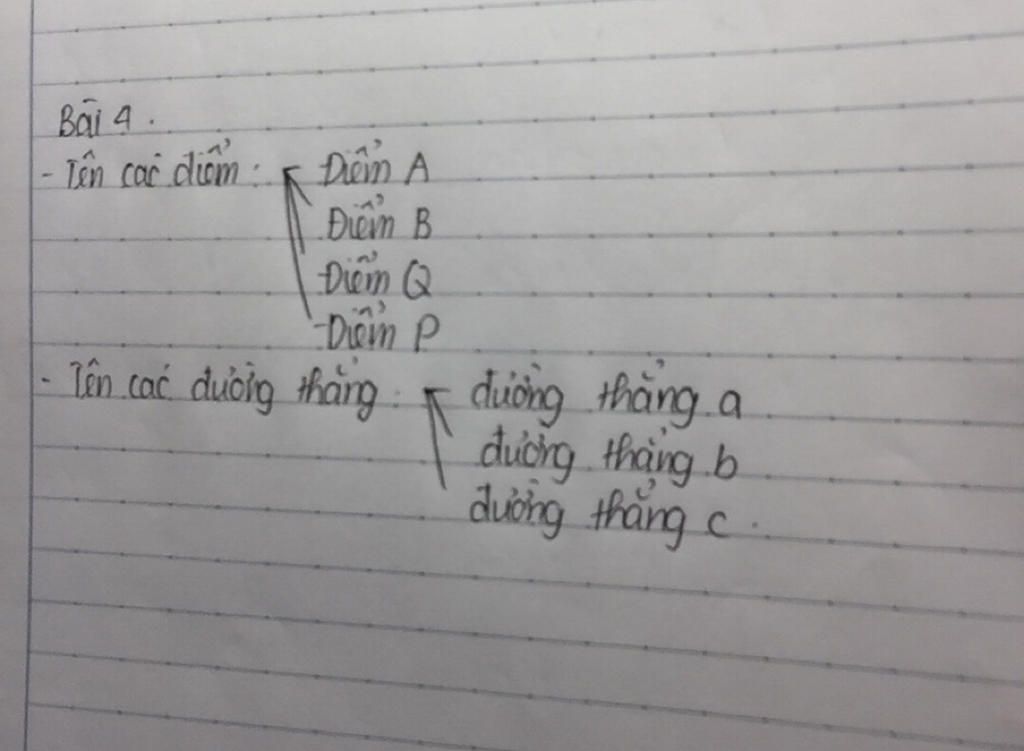 Bài 4.
- Tên các điểm: Điểm A
Điểm B
Điểm Q
Điểm P
- Tên các đường thẳng: đường thẳng a
đường thẳng b
đường thẳng c.